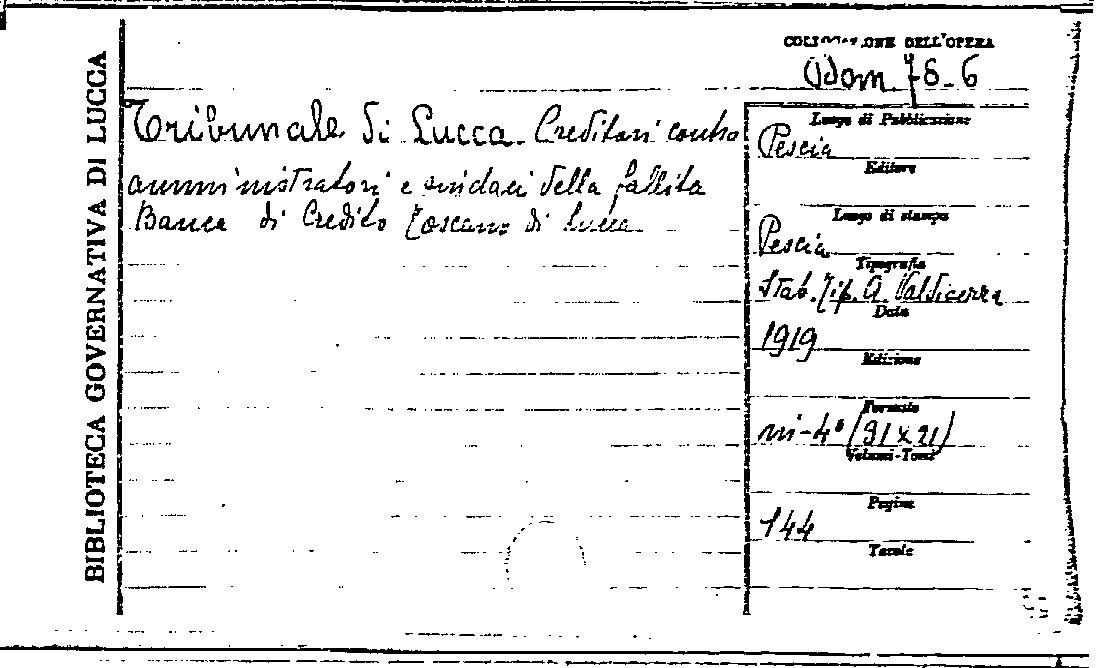 BIBLIOTECA GOVERNATIVA DI LUCCA
COLLOCAZIONE DELL'OPERA
Odom 78-6
Tribunale di Lucca. Creditori contro
amministratori e sindaci della fallita
Banca di Credito Toscano di Lucca
Luogo di Pubblicazione
Pescia
Editore
Luogo di stampa
Pescia
Tipografia
Stab. Tip. A.
Data
1919
Edizione
Formato
in-4° (31x21)
Volumi-Tomi
Pagine
144
Tavole